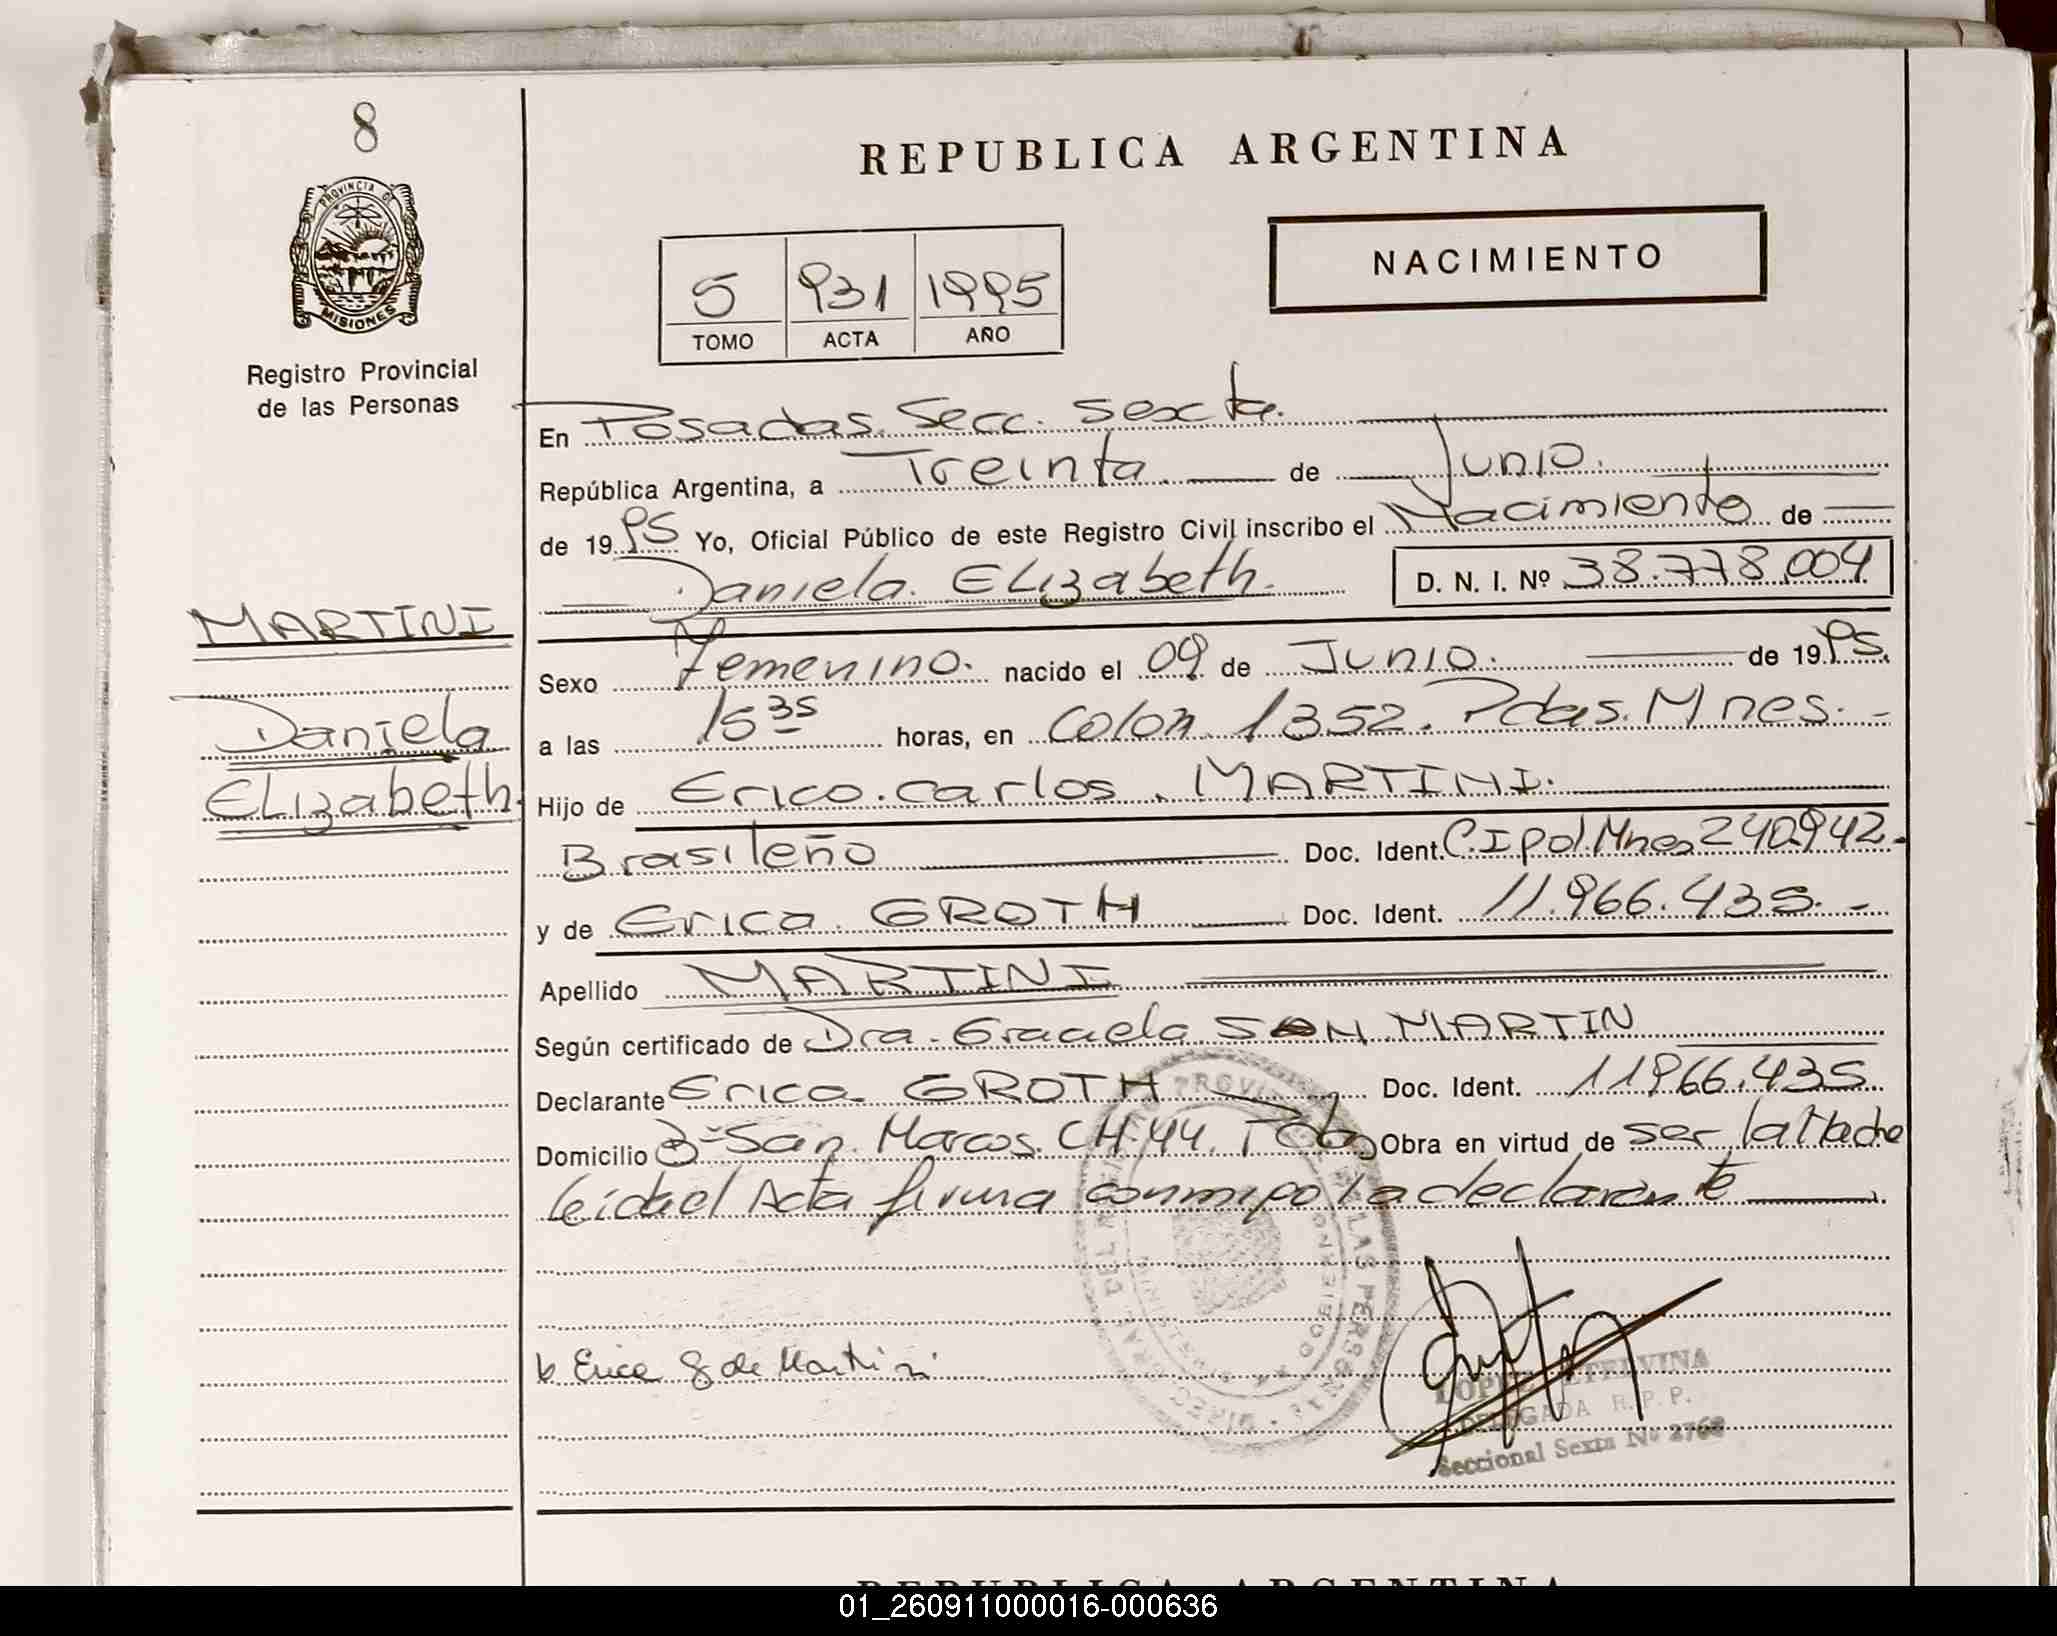 8
REPUBLICA ARGENTINA
PROVINCIA DE
MISIONES
NACIMIENTO
5 931 1995
TOMO ACTA AÑO
Registro Provincial
de las Personas
En Posadas. Secc. Sexta.
República Argentina, a Treinta de Junio.
de 1995 Yo, Oficial Público de este Registro Civil inscribo el Nacimiento de
Daniela. ELizabeth. D. N. I. Nº 38.778.004
MARTINI
Daniela
ELizabeth.
Sexo Femenino. nacido el 09 de Junio. de 1995.
a las 15 35 horas, en Colon 1352. Pdas. Mnes.-
Hijo de Erico. Carlos. MARTINI.
Brasileño Doc. Ident. C.I pol. Mnes 240942.-
y de Erica. GROTH Doc. Ident. 11.966.435.-
Apellido MARTINI
Según certificado de Dra. Graciela SAN MARTIN
Declarante Erica GROTH Doc. Ident. 11966.435
Domicilio Bº San Marcos. CH. 44. Pdas Obra en virtud de ser la Madre
leida el Acta firma conmigo la declarante
Erica G de Martini
LOPEZ ETELVINA
DELEGADA R. P. P.
Seccional Sexta Nº 2768
REPUBLICA ARGENTINA
01_260911000016-000636